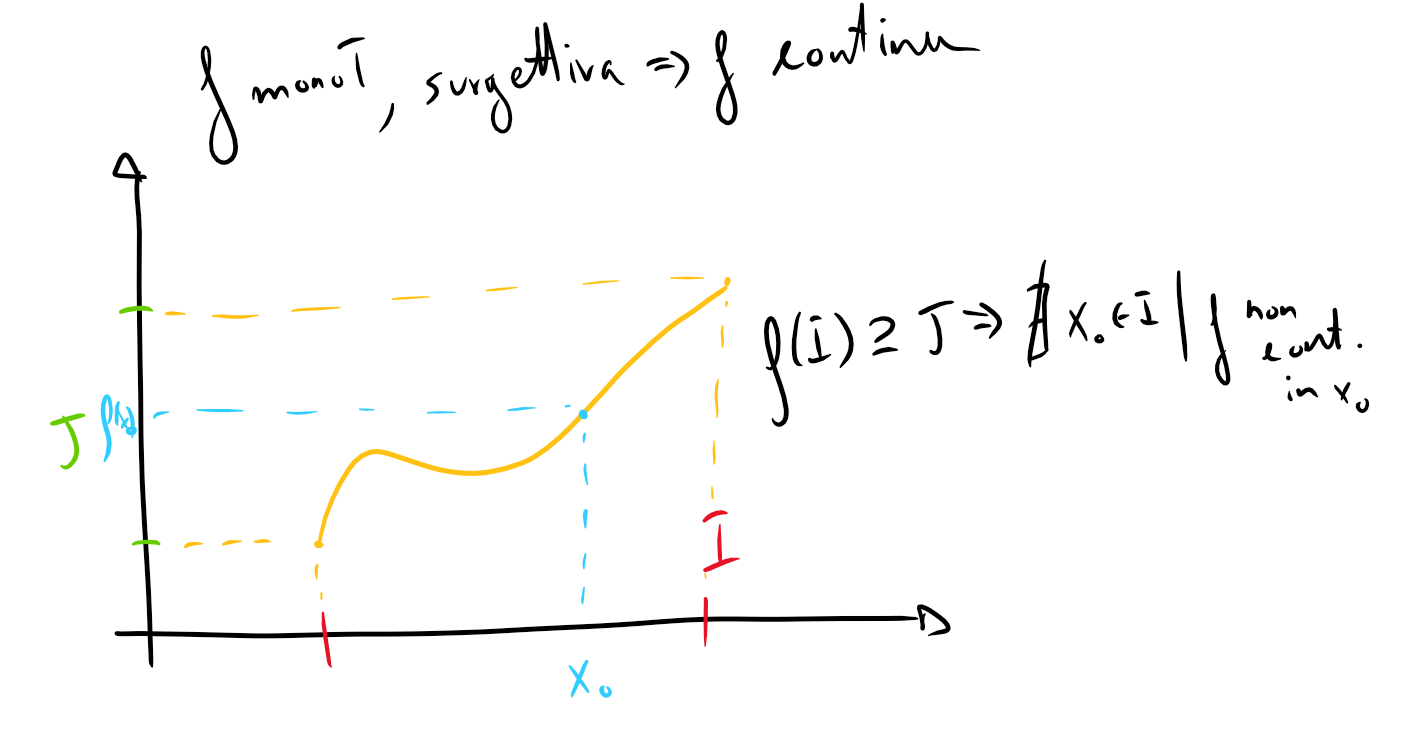 f monot, surgettiva ⇒ f continu
f(I) ⊇ J ⇒ ∄ x₀ ∈ I | f non cont. in x₀
J
f(x₀)
I
x₀